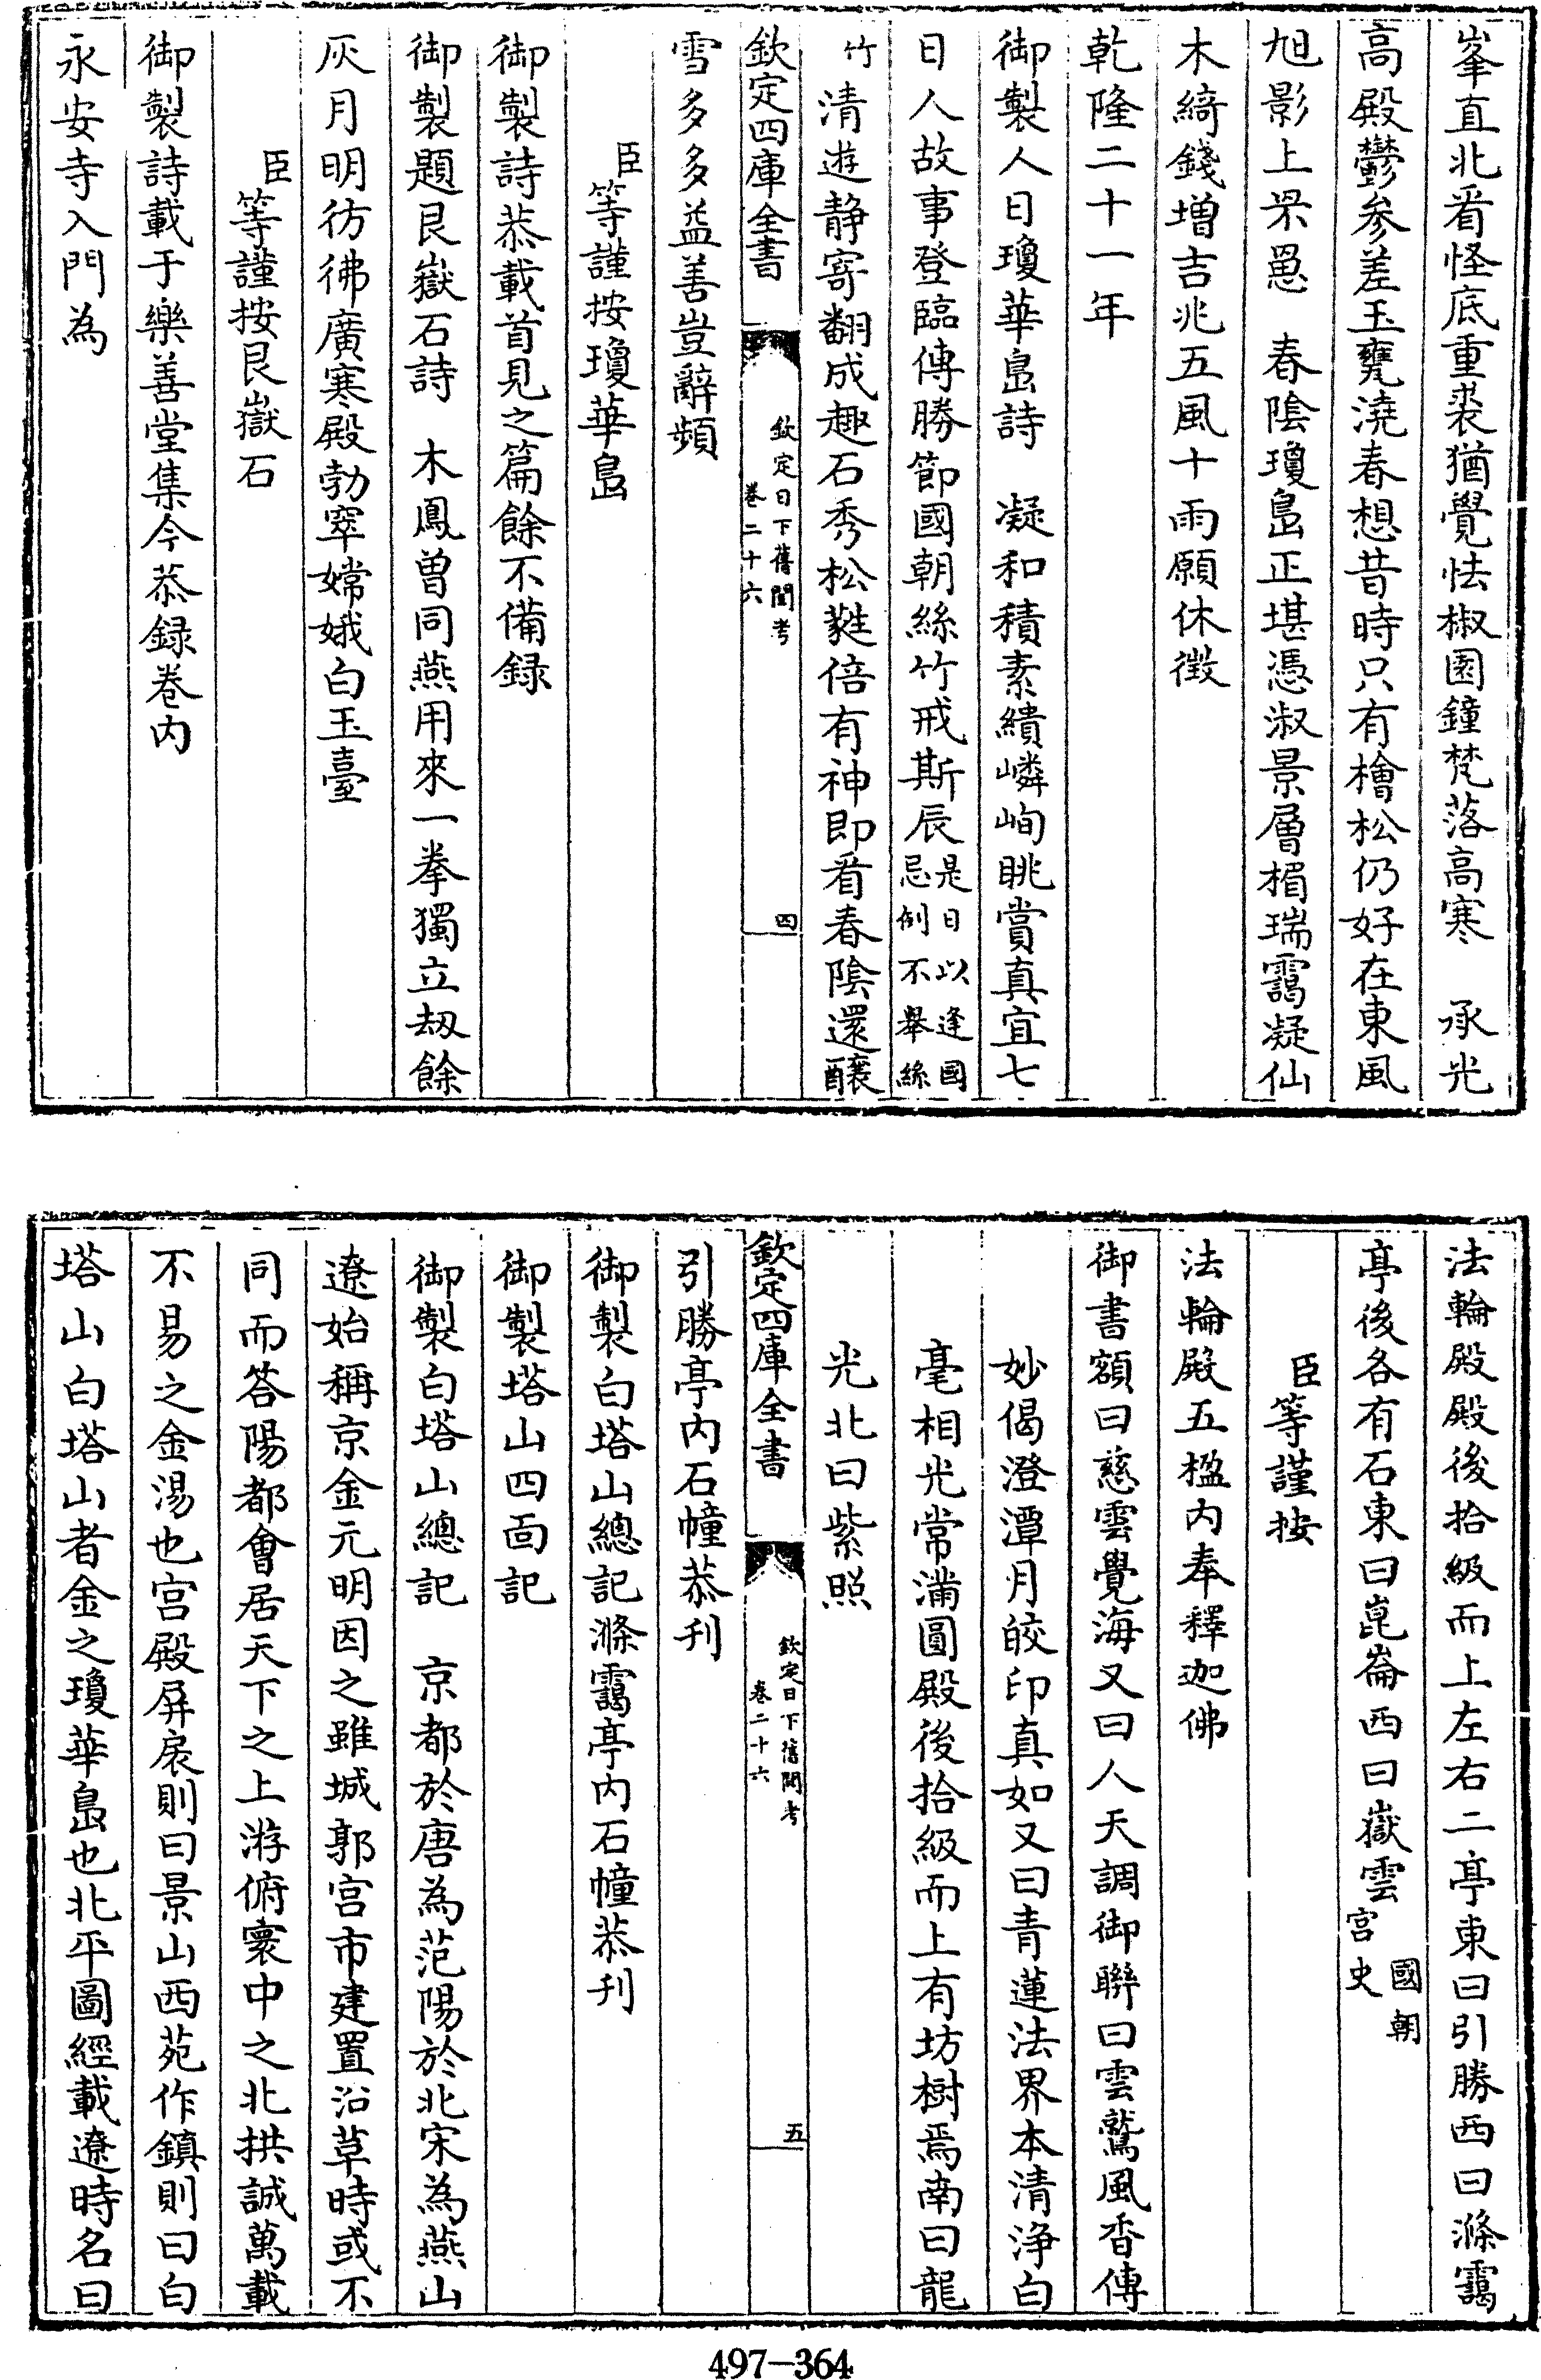 峯直北看怪底重裘猶覺怯椒園鐘梵落高寒　承光
高殿鬱參差玉甕澆春想昔時只有檜松仍好在東風
旭影上罘罳　春陰瓊島正堪憑淑景層楣瑞靄凝仙
木綺錢增吉兆五風十雨願休徴
乾隆二十一年
御製人日瓊華島詩　凝和積素繢嶙峋眺賞真宜七
日人故事登臨傳勝節國朝絲竹戒斯辰是日以逢國忌例不舉絲
竹清遊静寄翻成趣石秀松蕤倍有神即看春陰還釀
欽定四庫全書　欽定日下舊聞考　卷二十六　四
雪多多益善豈辭頻
臣等謹按瓊華島
御製詩恭載首見之篇餘不備録
御製題艮嶽石詩　木鳳曽同燕用來一拳獨立刼餘
灰月明彷彿廣寒殿勃窣嫦娥白玉臺
臣等謹按艮嶽石
御製詩載于樂善堂集今恭録卷内
永安寺入門為
法輪殿殿後拾級而上左右二亭東曰引勝西曰滌靄
亭後各有石東曰崑崙西曰嶽雲國朝宫史
臣等謹按
法輪殿五楹内奉釋迦佛
御書額曰慈雲覺海又曰人天調御聨曰雲鷲風香傳
妙偈澄潭月皎印真如又曰青蓮法界本清浄白
毫相光常滿圓殿後拾級而上有坊樹焉南曰龍
光北曰紫照
欽定四庫全書　欽定日下舊聞考　卷二十六　五
引勝亭内石幢恭刋
御製白塔山總記滌靄亭内石幢恭刋
御製塔山四面記
御製白塔山總記　京都於唐為范陽於北宋為燕山
遼始稱京金元明因之雖城郭宫市建置沿革時或不
同而答陽都會居天下之上游俯寰中之北拱誠萬載
不易之金湯也宫殿屏扆則曰景山西苑作鎮則曰白
塔山白塔山者金之瓊華島也北平圖經載遼時名曰
497-364